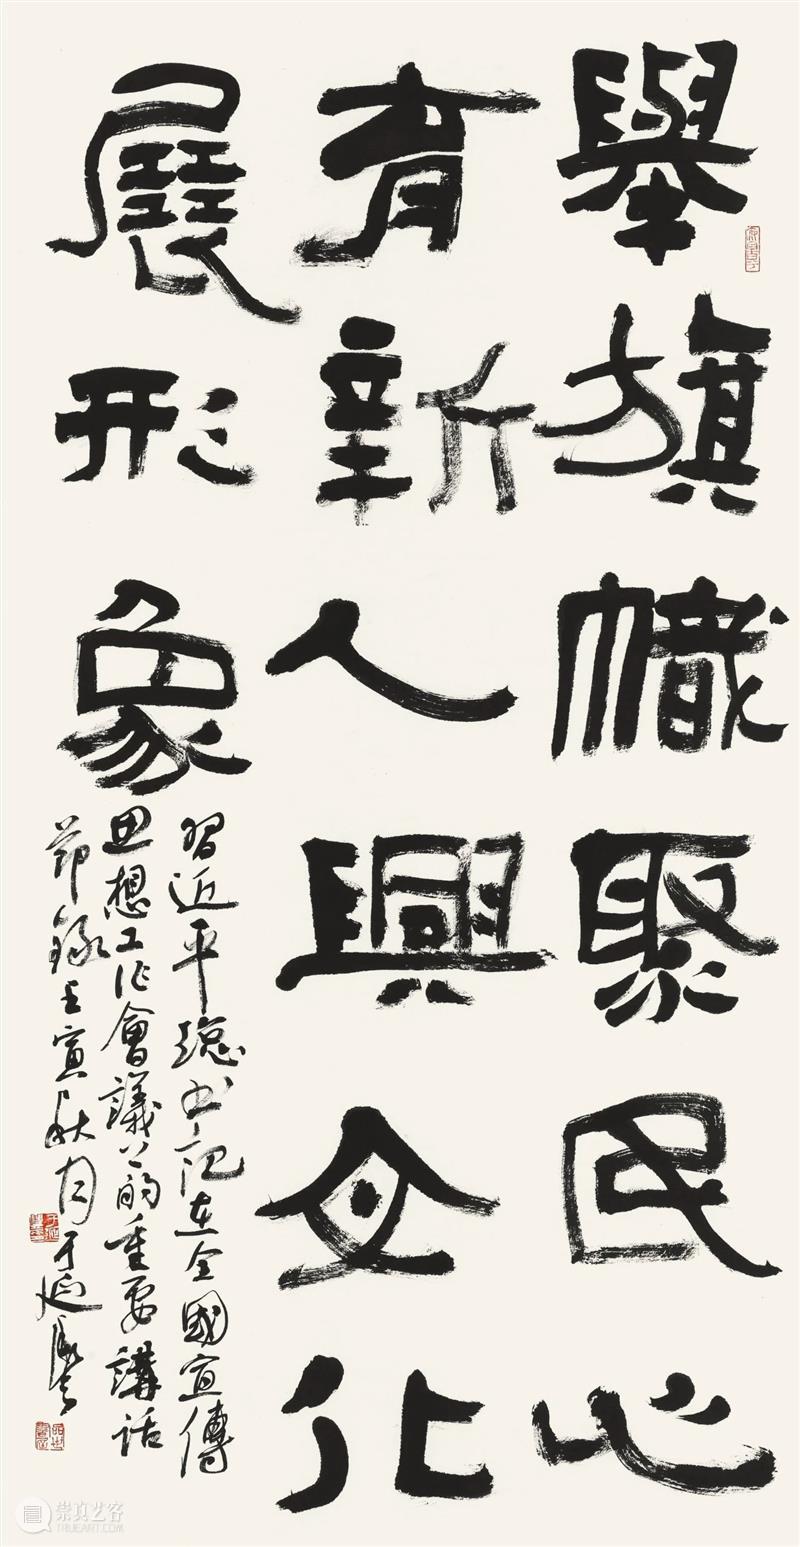 舉旗幟聚民心
育新人興文化
展形象
習近平總書記在全國宣傳
思想工作會議上的重要講話
節錄壬寅秋月于延
崇真艺客
TRUEART.COM